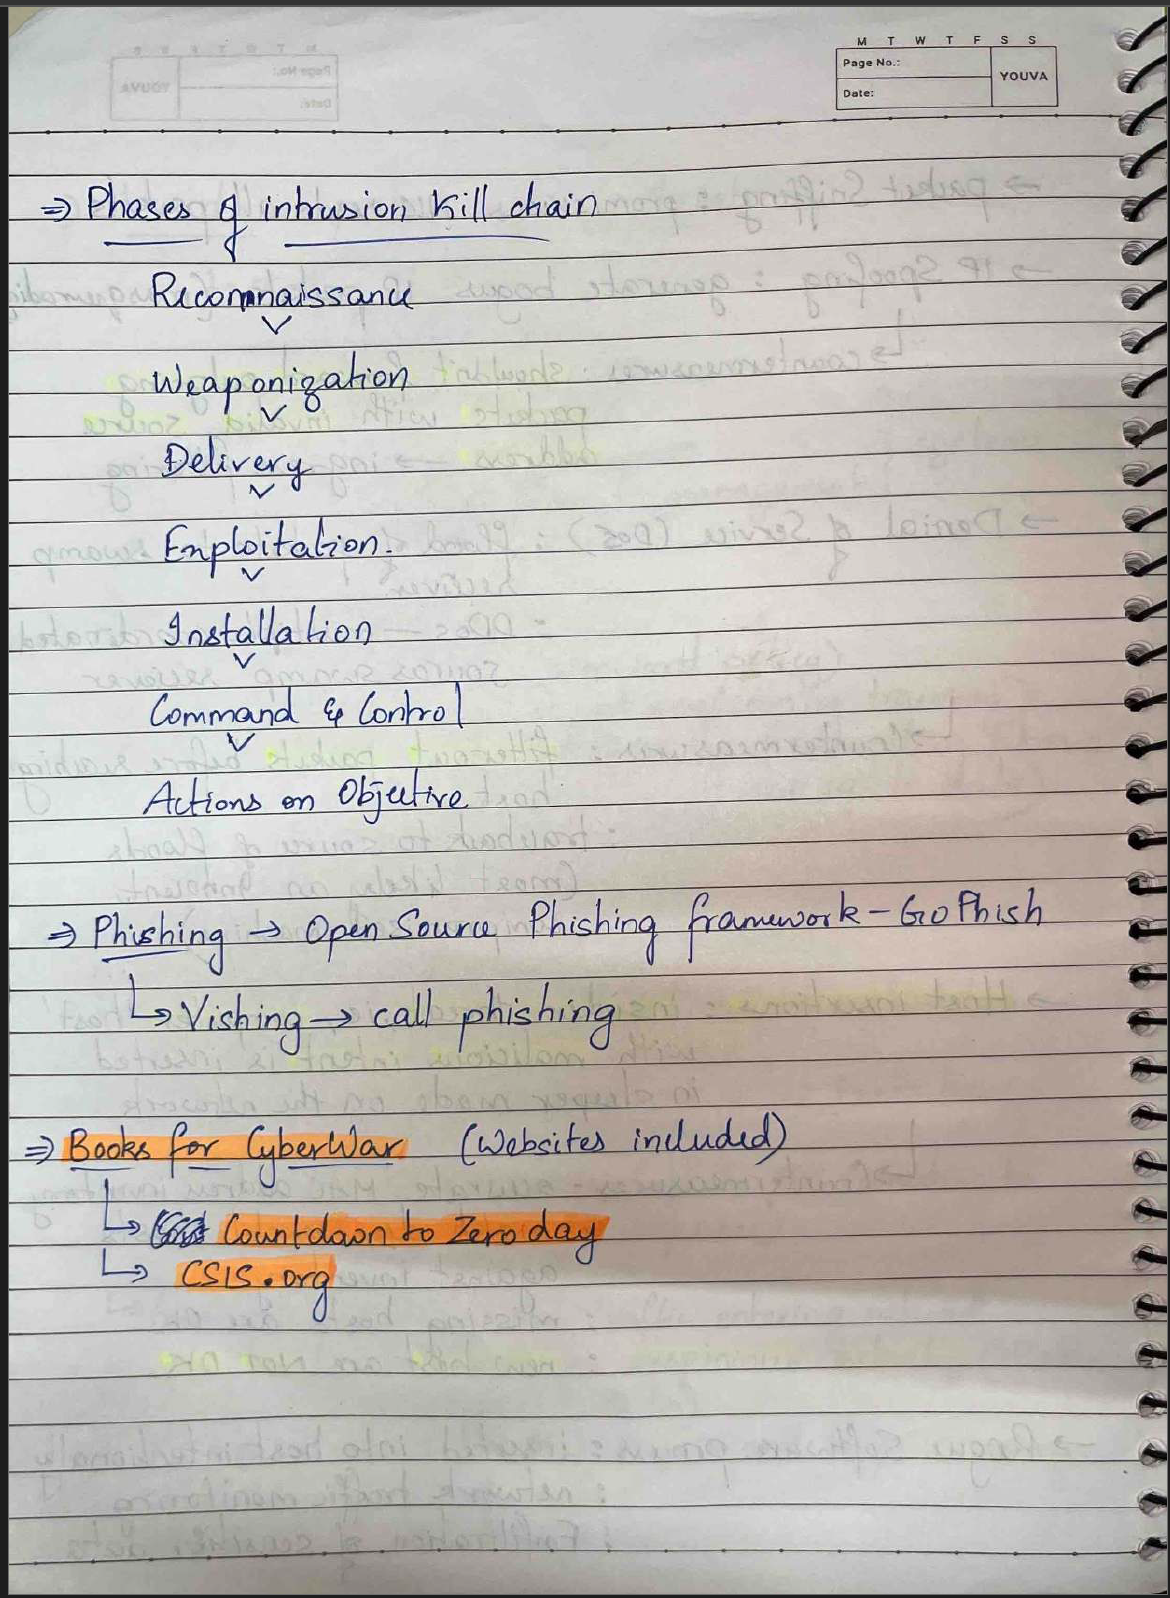 M T W T F S S
Page No.:
YOUVA
Date:
⇒ Phases of intrusion Kill chain
Reconnaissance
Weaponization
Delivery
Exploitation.
Installation
Command & Control
Actions on Objective
⇒ Phishing → Open Source Phishing framework - GoPhish
↳ Vishing → call phishing
⇒ Books for CyberWar (Websites included)
↳ Countdown to Zero day
↳ CSIS.org